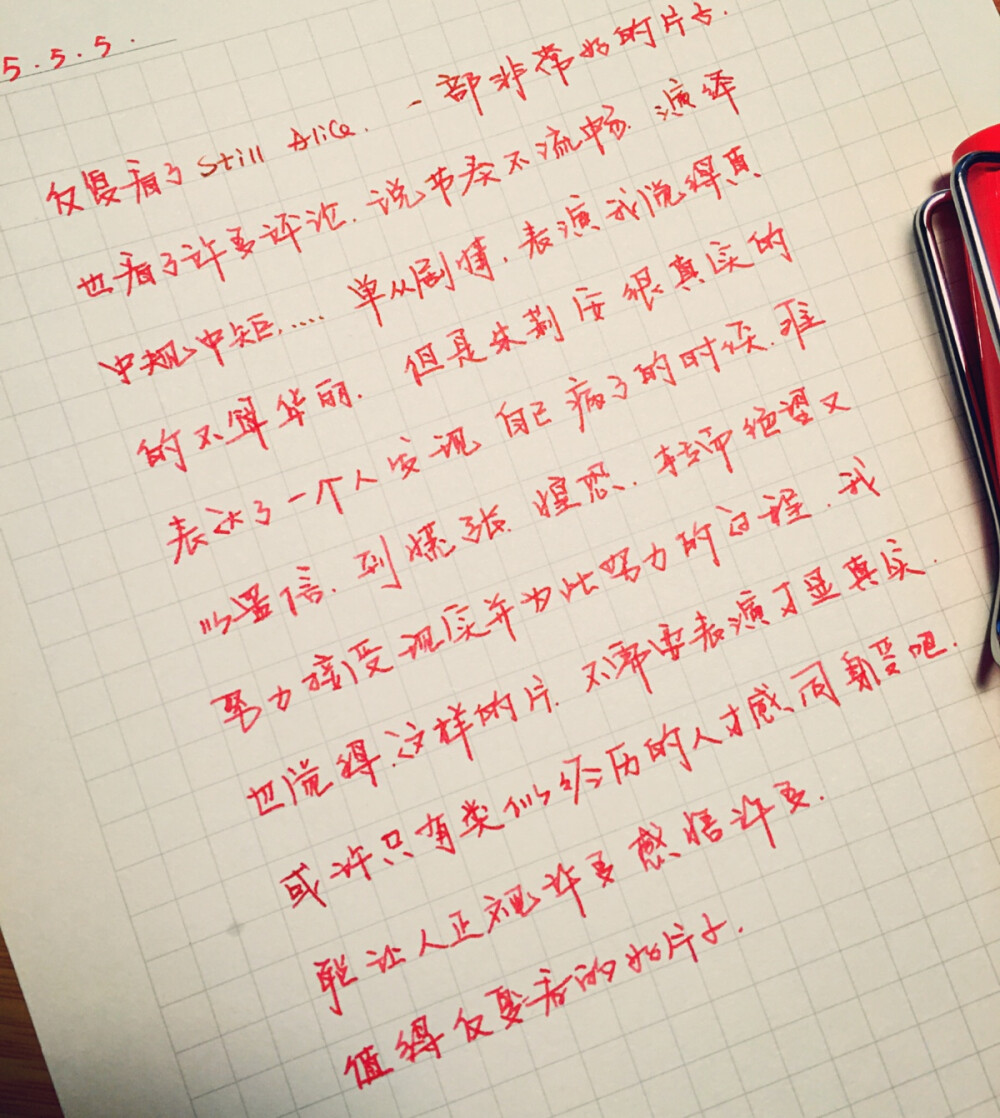 5.5.5.
反复看了 Still Alice. 一部非常好的片子.
也看了许多评论. 说节奏不流畅. 演绎
中规中矩..... 单从剧情. 表演我觉得真
的不算华丽. 但是朱莉安很真实的
表达了一个人发现自己病了的时候. 难
以置信. 到慌张. 惶恐. 转而绝望又
努力接受现实并为此努力的过程. 我
也觉得.这样的片.不需要表演才显真实.
或许只有类似经历的人才感同身受吧.
能让人正视许多感悟许多.
值得反复看的好片子.